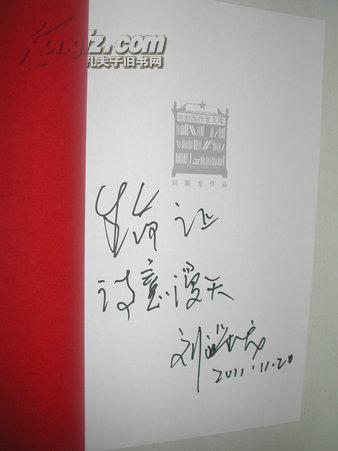 Kongfz.com
孔夫子旧书网
共和国作家文库
刘醒龙作品
诗意漫天
刘醒龙
2011.11.20